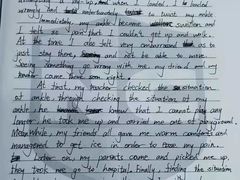 and when I landed, I landed
wrongly and to twist my ankle
immediately, my ankle became swollen, and
I felt so pain that I couldn't get up and walk.
At the time, I also felt very embarrassed as to
just stay there, and not be able to move.
Seeing something go wrong with me, my friend and my
teacher came there right.
At first, my teacher checked the situation
of ankle through checking the situation of my
ankle he knew that I cannot play any
longer, he took me up and carried me out of playground.
Meanwhile, my friends all gave me warm comforts and
managed to get ice in order to my pain.
Later on, my parents came and picked me up,
they took me go to hospital. Finally finding the situation